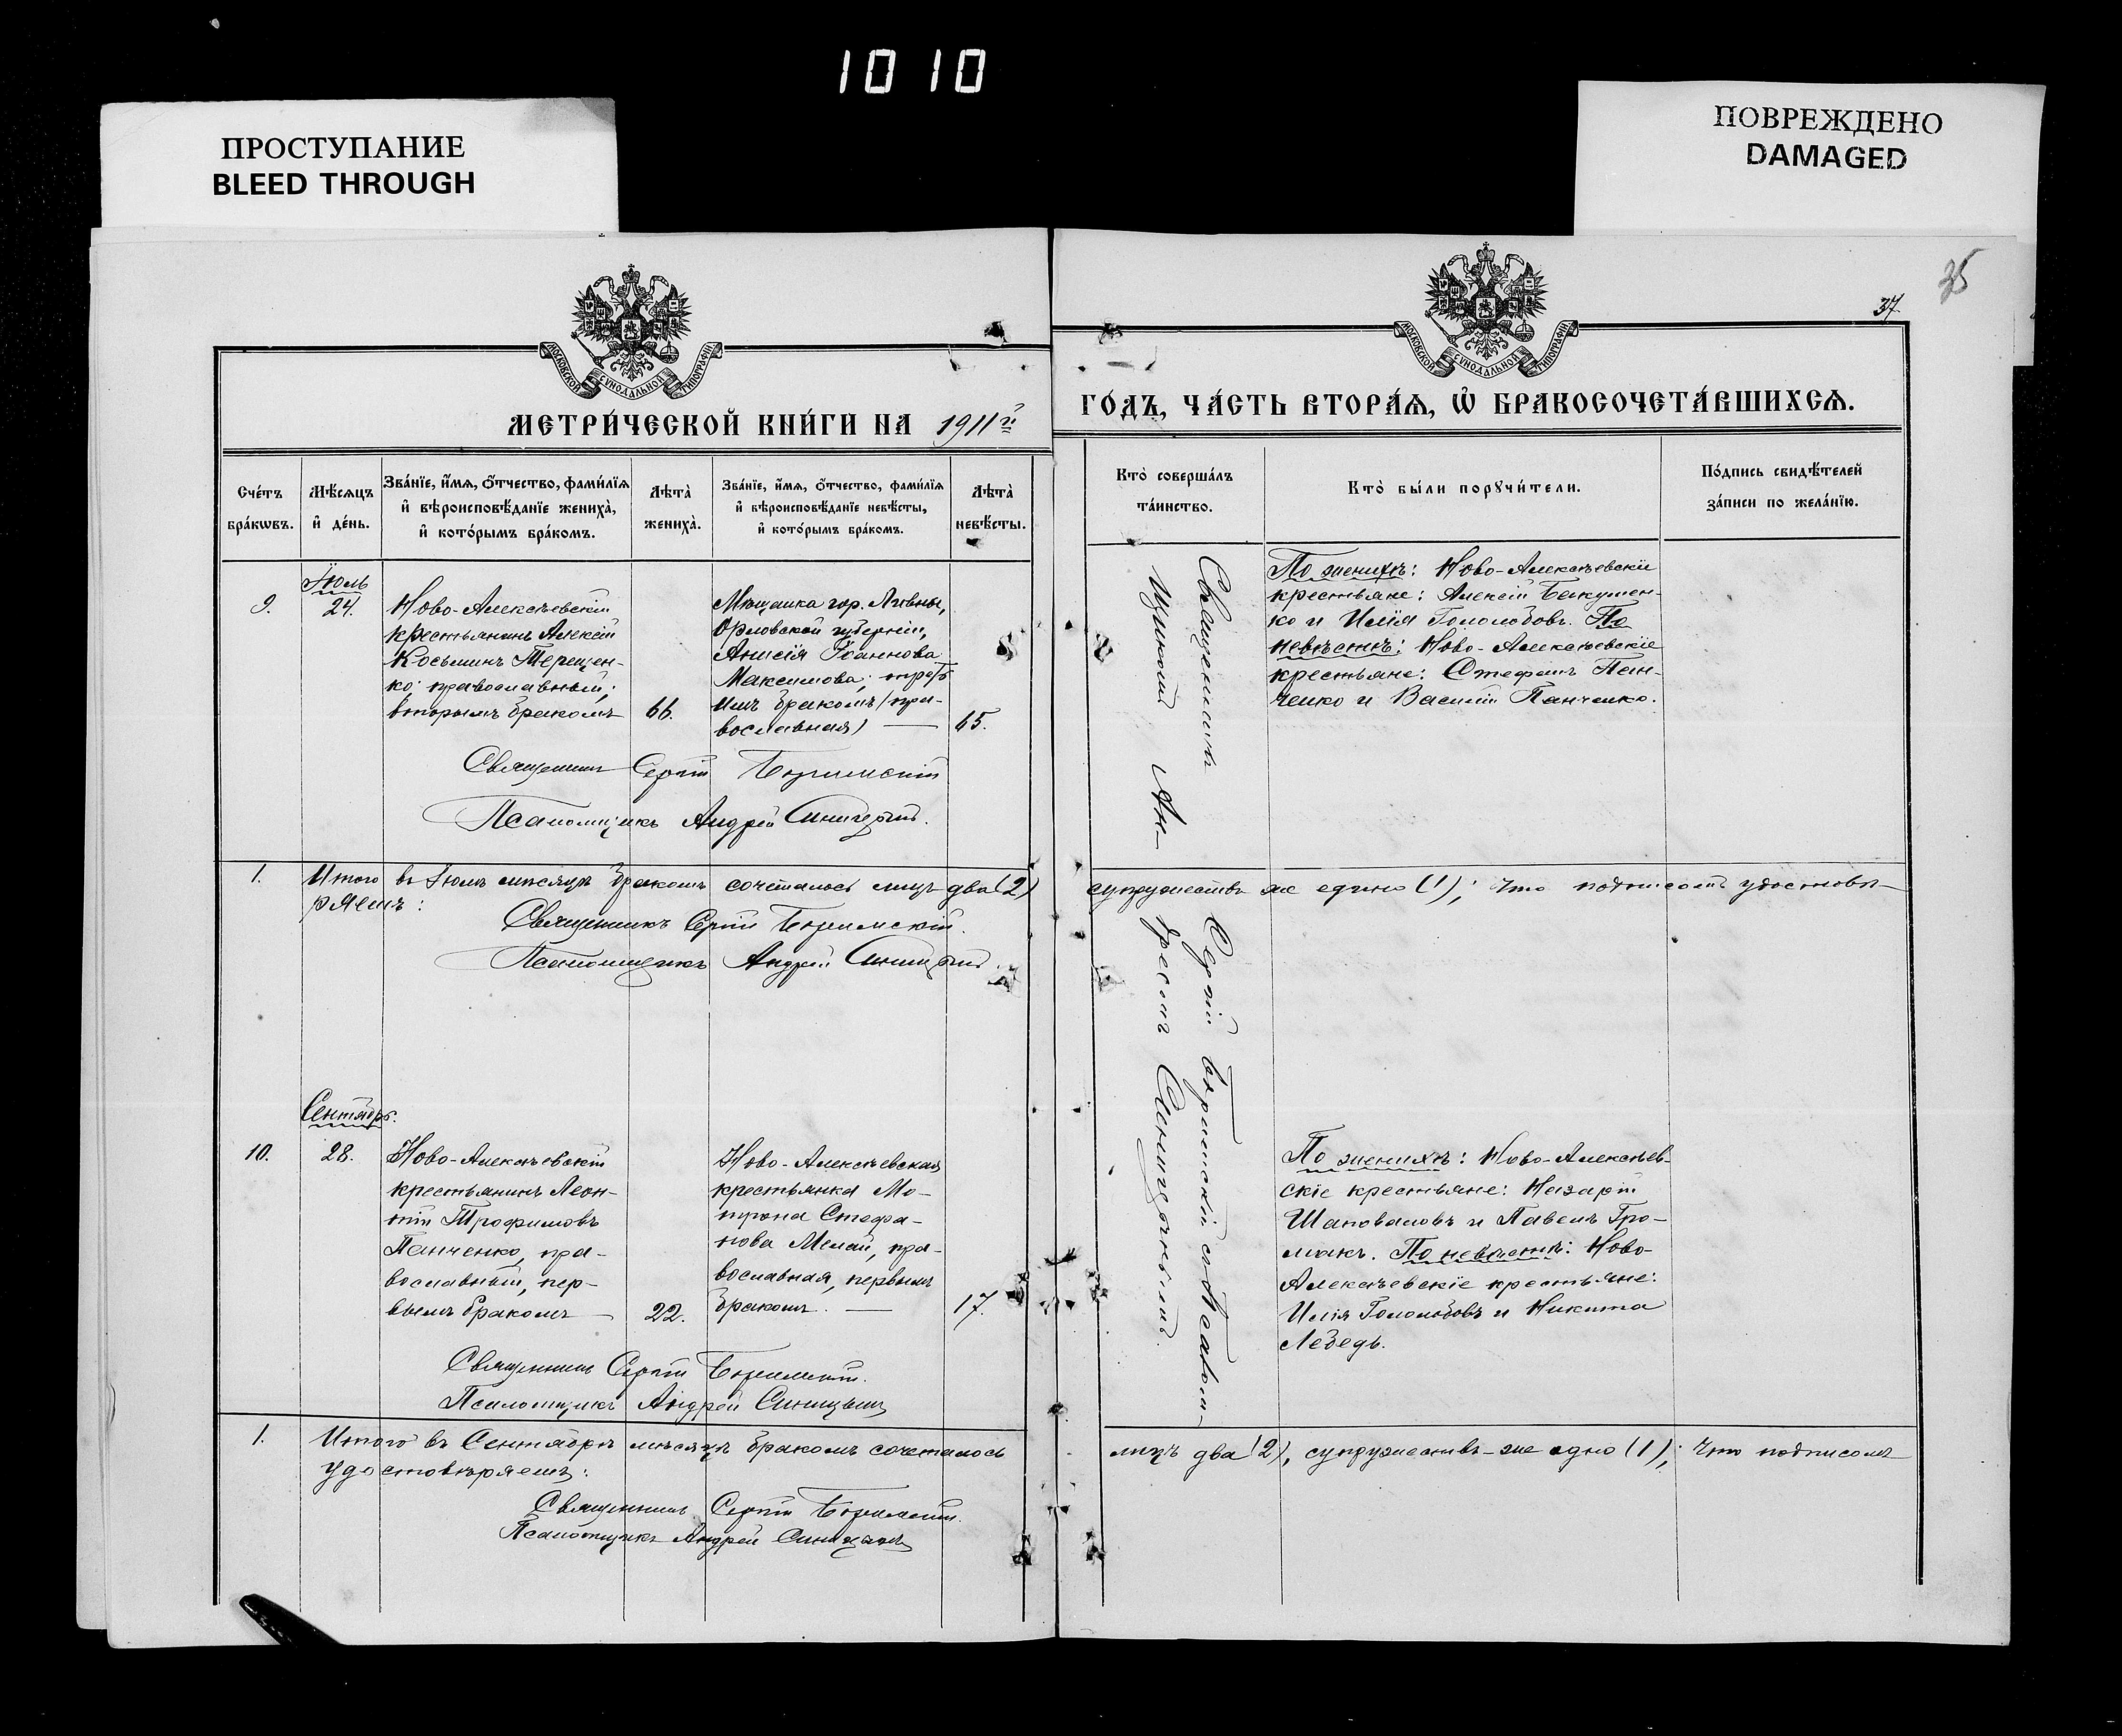 1010
ПРОСТУПАНИЕ
BLEED THROUGH
ПОВРЕЖДЕНО
DAMAGED
35
37.
МОСКОВСКОЙ СѴНОДАЛЬНОЙ ТИПОГРАФІИ
МОСКОВСКОЙ СѴНОДАЛЬНОЙ ТИПОГРАФІИ
МЕТРИ́ЧЕСКОЙ КНИ́ГИ НА 1911й
ГО́ДЪ, ЧА́СТЬ ВТОРА́Ѧ, Ѽ БРАКОСОЧЕТА́ВШИХСѦ.
Сче́тъ
бра́кѡвъ.
Мѣ́сѧцъ
и҆ де́нь.
Зва́нїе, и҆́мѧ, ѻ҆́тчество, фами́лїѧ
и҆ вѣроисповѣ́данїе жениха̀,
и҆ кото́рымъ бра́комъ.
Лѣта̀
жениха̀.
Зва́нїе, и҆́мѧ, ѻ҆́тчество, фами́лїѧ
и҆ вѣроисповѣ́данїе невѣ́сты,
и҆ кото́рымъ бра́комъ.
Лѣта̀
невѣ́сты.
Кто̀ соверша́лъ
та́инство.
Кто̀ бы́ли порꙋчи́тели.
По́дпись свидѣ́телей
за́писи по жела́нїю.
Іюль
9.
24.
Ново-Алексѣевскій
крестьянинъ Алексій
Косьминъ Терещен-
ко, православный,
вторымъ бракомъ
66.
Мѣщанка гор. Ливны,
Орловской губерніи,
Анисія Іоаннова
Максимова; треть-
имъ бракомъ (пра-
вославная)
65.
Священникъ
Сергій
съ псалом-
щикомъ Ан-
дреемъ
По женихѣ: Ново-Алексѣевскіе
крестьяне: Алексій
ко и Илія Гололобовъ. По
невѣстѣ: Ново-Алексѣевскіе
крестьяне: Стефанъ Пан-
ченко и Василій Панченко.
Священникъ Сергій
Псаломщикъ Андрей Синицынъ.
1. Итого въ Іюлѣ мѣсяцѣ бракомъ сочеталось лицъ два (2)
супружествъ же едино (1); что подписомъ удостовѣ-
ряемъ:
Священникъ Сергій
Псаломщикъ Андрей Синицынъ.
Сентябрь.
10.
28.
Ново-Алексѣевскій
крестьянинъ Леон-
тій Трофимовъ
Панченко, пра-
вославный, пер-
вымъ бракомъ
22.
Ново-Алексѣевская
крестьянка Ма-
трона Стефа-
нова Мелай, пра-
вославная, первымъ
бракомъ.
17.
По женихѣ: Ново-Алексѣев-
скіе крестьяне: Назарій
Шаповаловъ и Павелъ Гро-
макъ. По невѣстѣ: Ново-
Алексѣевскіе крестьяне:
Илія Гололобовъ и Никита
Лебедь.
Священникъ Сергій
Псаломщикъ Андрей Синицынъ
1. Итого въ Сентябрѣ мѣсяцѣ бракомъ сочеталось
лицъ два (2), супружествъ-же одно (1); что подписомъ
удостовѣряемъ:
Священникъ Сергій
Псаломщикъ Андрей Синицынъ